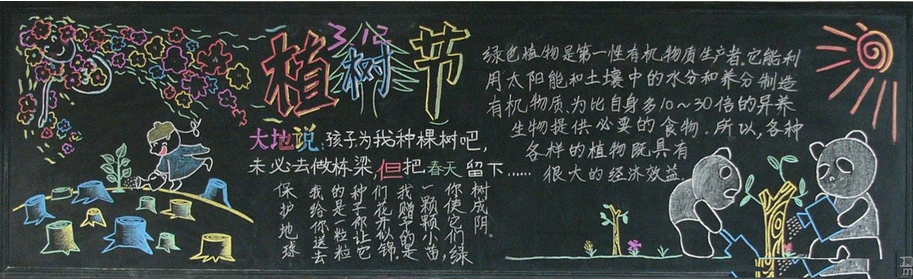 3.12
植树节
大地说:孩子为我种棵树吧,
未必去做栋梁,但把春天留下……
保护地球
我给你送去
的是一粒粒
种子你让它
们花开似锦.
我赠予的是
一颗颗小苗,
你使它们绿
树成阴.
绿色植物是第一性有机物质生产者,它能利
用太阳能和土壤中的水分和养分制造
有机物质,为比自身多10~30倍的异养
生物提供必要的食物.所以,各种
各样的植物既具有
很大的经济效益.